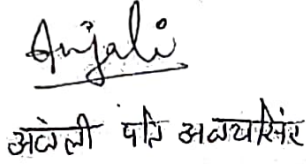 Anjali
अंजली पति अजयसिंह